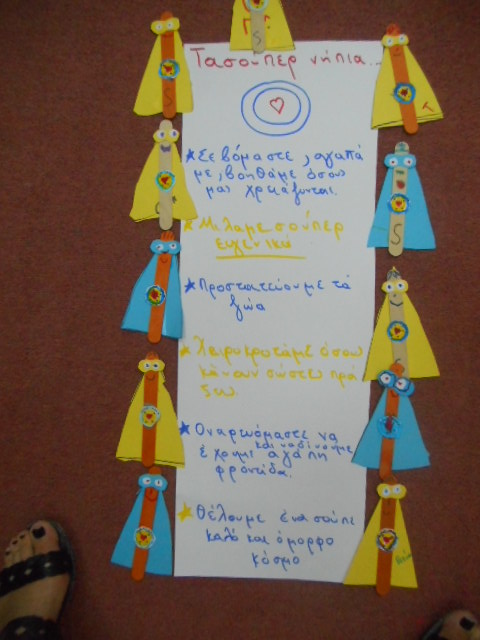 Τα σούπερ νήπια...
★Σεβόμαστε, αγαπά
με, βοηθάμε όσου
μας χρειάζονται.
★Μιλάμε σούπερ
ευγενικά
★Προστατεύουμε τα
ζώα
★Χειροκροτάμε όσου
κάνουν σώστες πρά
ξεις.
να
έχουμε και να δίνουμε αγάπη
φροντίδα.
★Θέλουμε ένα σούπε
καλό και όμορφο
κόσμο
S
S
S
S